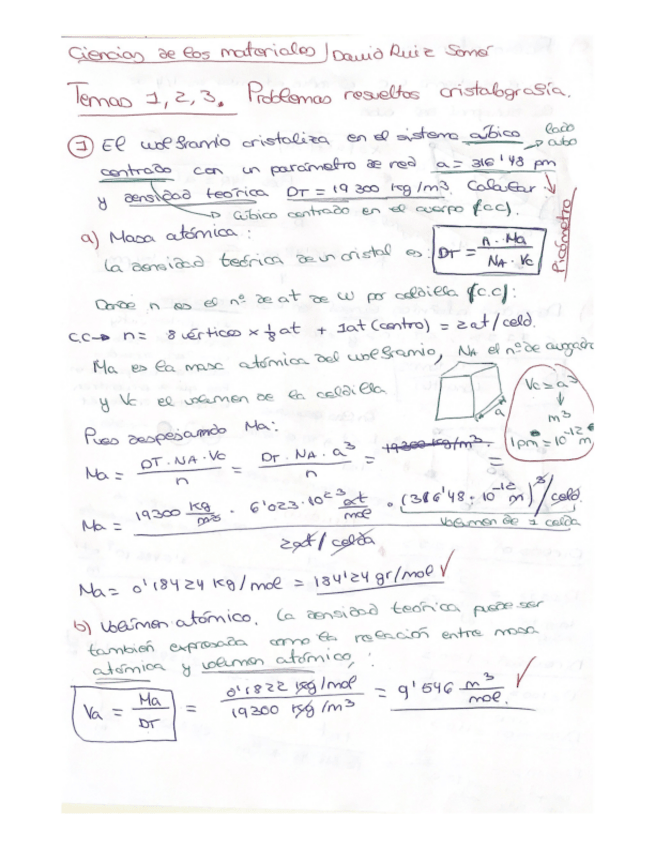 Ciencias de los materiales / David Ruiz
Temas 1, 2, 3. Problemas resueltos cristalografía.
1 El wolframio cristaliza en el sistema cúbico → lado cubo
centrado con un parámetro de red a = 316'48 pm
y densidad teórica DT = 19 300 kg/m³. Calcular
→ Cúbico centrado en el cuerpo (c.c).
Picómetro
a) Masa atómica:
la densidad teórica de un cristal es: DT = n · Ma / NA · Vc
Donde n es el nº de at de W por celdilla (c.c):
c.c → n = 8 vértices x 1/8 at + 1at (centro) = 2at/celd.
Ma es la masa atómica del wolframio, NA el nº de avogadro
y Vc el volumen de la celdilla
a
Vc = a³
↓
m³
1pm = 10⁻¹² m
Pues despejando Ma:
Ma = DT · NA · Vc / n = DT · NA · a³ / n = 19300 kg/m³. =
Ma = 19300 kg/m³ · 6'023 · 10²³ at/mol · (316'48 · 10⁻¹² m)³/celd. / 2at/celda
Volumen de 1 celda
Ma = 0'18424 kg/mol = 184'24 gr/mol ✓
b) Volúmen atómico. la densidad teórica puede ser
también expresada como la relación entre masa
atómica y volumen atómico, :
Va = Ma / DT = 0'1822 kg/mol / 19300 kg/m³ = 9'546 m³/mol. ✓